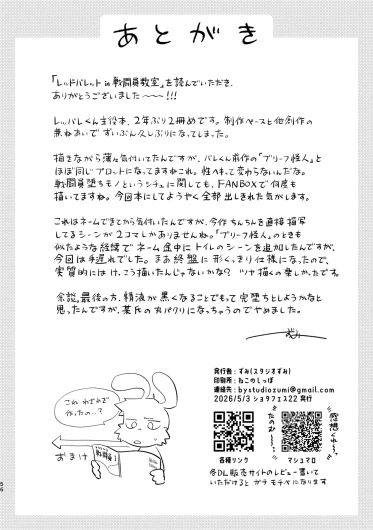 あとがき
「レッドバレット in 戦闘員教室」を読んでいただき、
ありがとうございました〜〜〜!!!
レッバレくん主役本、2年ぶり2冊めです。制作ペースと他創作の
兼ねあいで ずいぶん久しぶりになってしまった。
描きながら薄々気付いてたんですが、バレくん前作の「ブリーフ怪人」と
ほぼ同じプロットになってますねこれ。性へきって変わらないんだな。
戦闘員堕ちモノというシチュに関しても、FANBOXで何度も
描いてますね。今回本にしてようやく全部出しきれた気がします。
これはネームできてから気付いたんですが、今作ちんちんを直接描写
してるシーンが2コマしかありませんね。「ブリーフ怪人」のときも
似たような経験で ネーム途中にトイレのシーンを追加したんですが、
今回は手遅れでした。まあ終盤に形くっきり仕様になったので、
実質的には け、こう描いたんじゃないかな? ツヤ描くの楽しかったです。
余談、最後の方、精液が黒くなることでもって完堕ちとしようかなと
思ったんですが、某氏の丸パクリになっちゃうのでやめました。
発行者:ずみ(スタジオずみ)
印刷所:ねこのしっぽ
連絡先:bystudiozumi@gmail.com
2026/5/3 ショタフェス22 発行
これ わざわざ
作ったの…?
戦闘員!
おまけ
各種リンク
マシュマロ
感想くれ〜
たのむ〜
各DL販売サイトのレビュー書いて
いただけると ガチ モチベになります
56